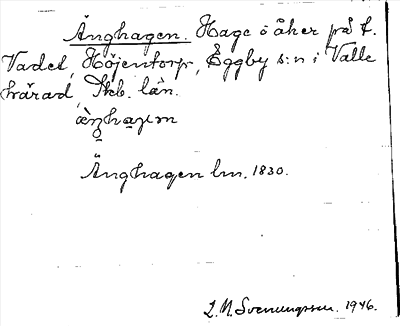 Änghagen. Hage o åker på f.
Vadet, Höjentorp, Eggby s:n i Valle
härad, Skb. län.
Änghagen lm. 1830.
L. N. Svenungsson. 1946.